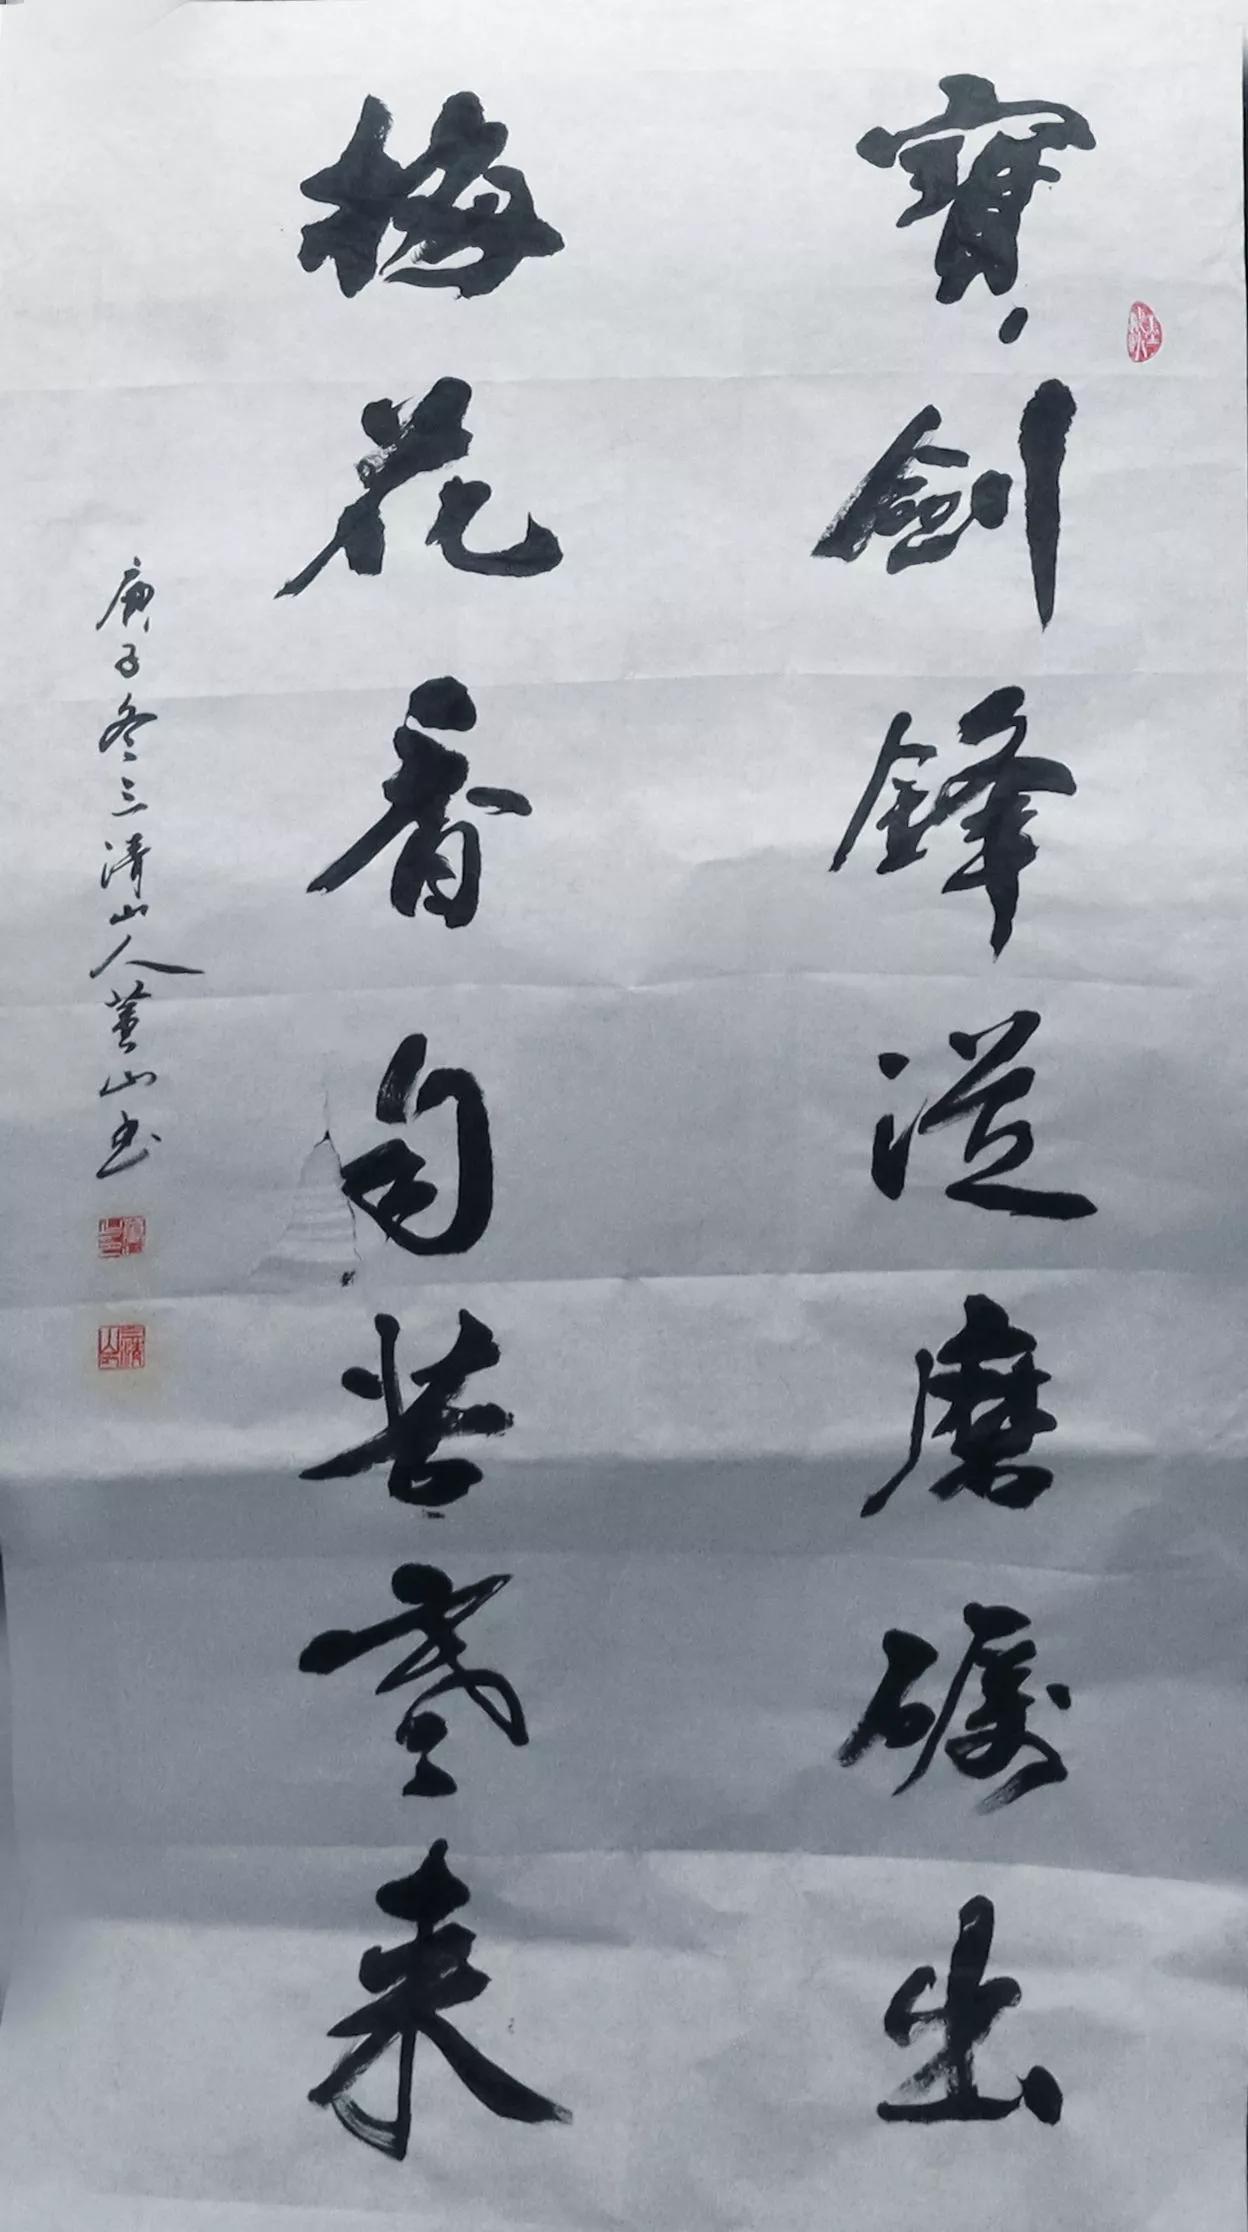 寶劍鋒從磨礪出
梅花香自苦寒來
庚子冬三清山人黃山书